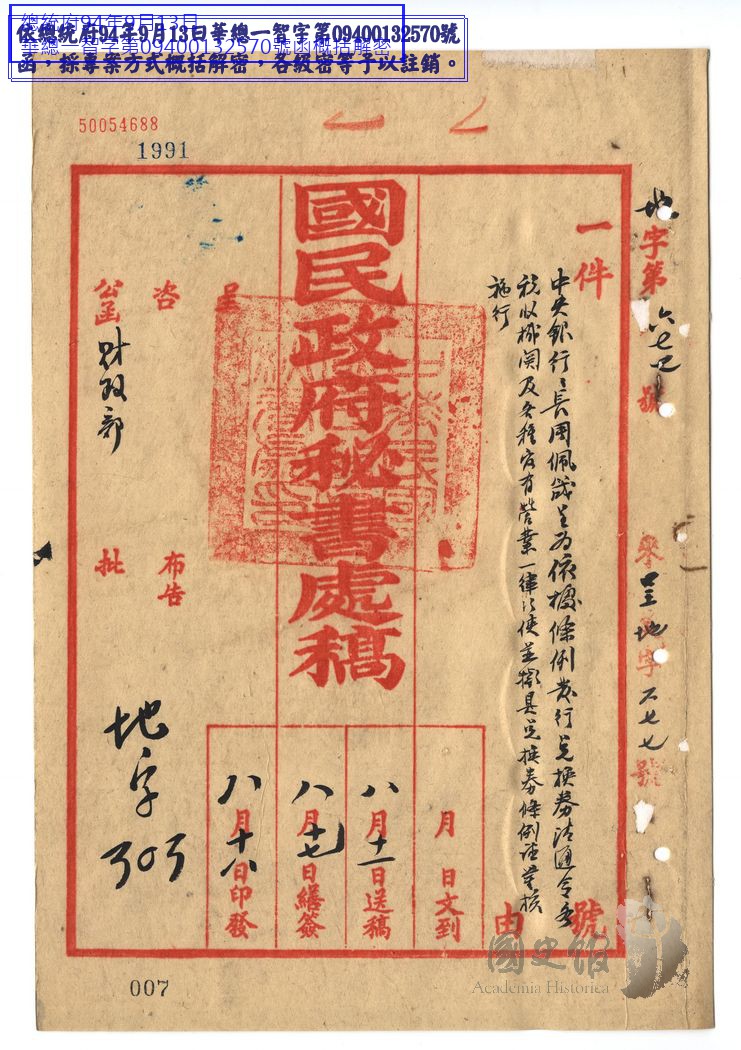 總統府94年9月13日
華總一智字第09400132570號函概括解密
依總統府94年9月13日華總一智字第09400132570號
函，採專案方式概括解密，各級密等予以註銷。
50054688
1991
地字第六七四號
來呈地字六七七號
一件
中央銀行行長周佩箴呈为依據條例发行兌換劵請通令各
稅收機関及各種官有營業一律行使並擬具兌換劵條例請鑒核
施行
由
號
國民政府秘書處稿
呈
咨
公函
財政部
布告
批
月日文到
八月十一日送稿
八月十七日繕簽
八月十八日印發
地字303
007
國史館
Academia Historica